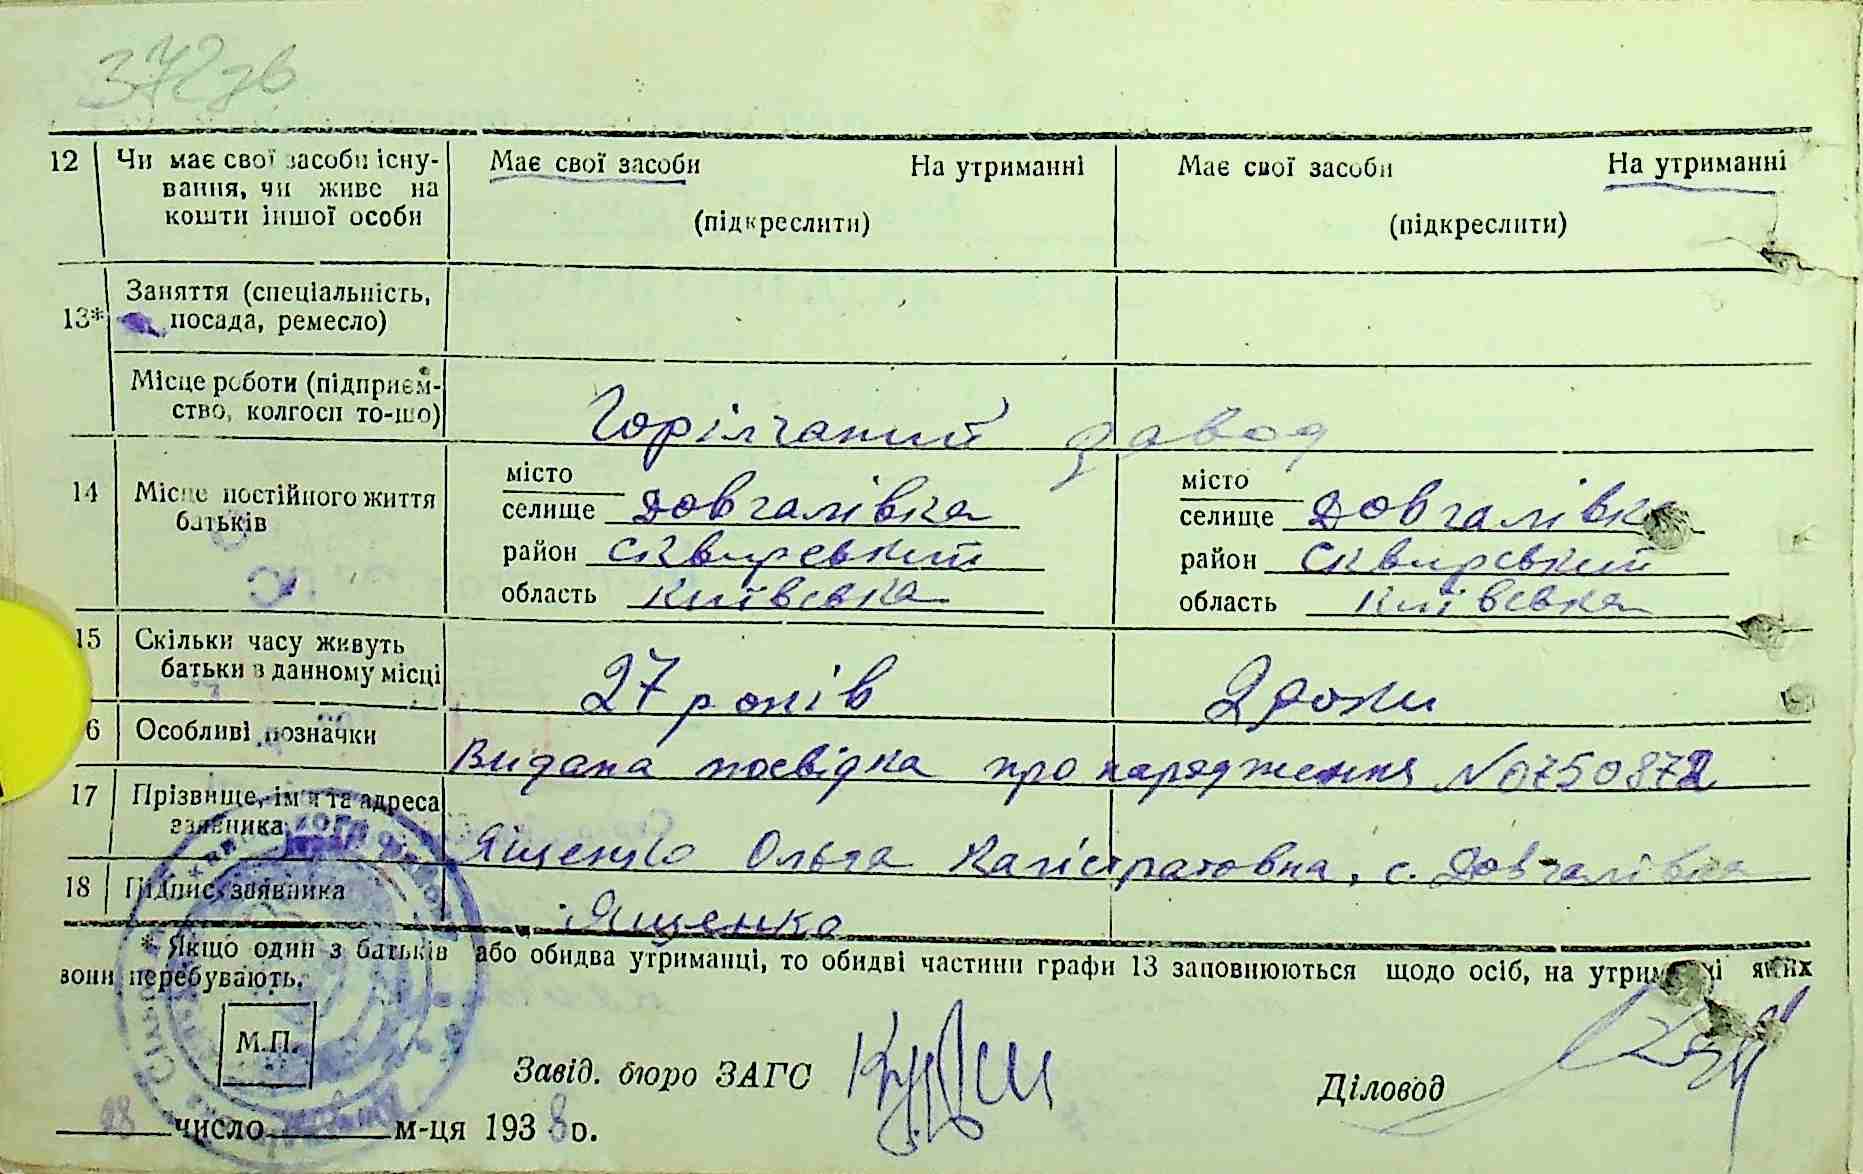 372 зв
12 Чи має свої засоби існу- Має свої засоби На утриманні Має свої засоби На утриманні
вання, чи живе на
кошти іншої особи (підкреслити) (підкреслити)
Заняття (спеціальність,
13* посада, ремесло)
Місце роботи (підприєм-
ство, колгосп то-що) Горілчаний завод
14 Місце постійного життя батьків
місто місто
селище Довгалівка селище Довгалівка
район Сквирський район Сквирський
область Київська область Київська
15 Скільки часу живуть
батьки в данному місці 27 років 2 роки
6 Особливі позначки Видана посвідка про народження №0750872
17 Прізвище, ім'я та адреса
заявника Ященко Ольга Калістратовна, с. Довгалівка
18 Підпис заявника Ященко
* Якщо один з батьків або обидва утриманці, то обидві частини графи 13 заповнюються щодо осіб, на утриманні яких
вони перебувають.
М.П.
Завід. бюро ЗАГС Діловод
28 число м-ця 1938 р.